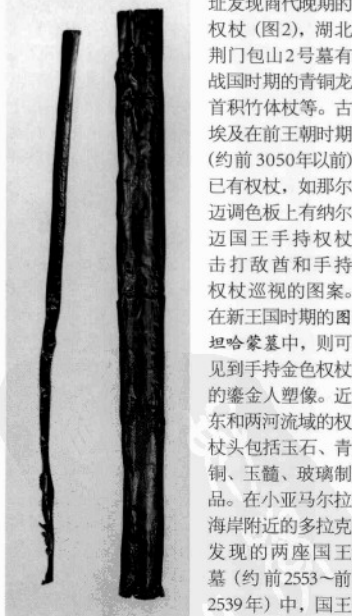 址发现商代晚期的
权杖(图2),湖北
荆门包山2号墓有
战国时期的青铜龙
首积竹体杖等。古
埃及在前王朝时期
(约前3050年以前)
已有权杖,如那尔
迈调色板上有纳尔
迈国王手持权杖
击打敌酋和手持
权杖巡视的图案。
在新王国时期的图
坦哈蒙墓中,则可
见到手持金色权杖
的鎏金人塑像。近
东和两河流域的权
杖头包括玉石、青
铜、玉髓、玻璃制
品。在小亚马尔拉
海岸附近的多拉克
发现的两座国王
墓(约前2553~前
2539年)中,国王